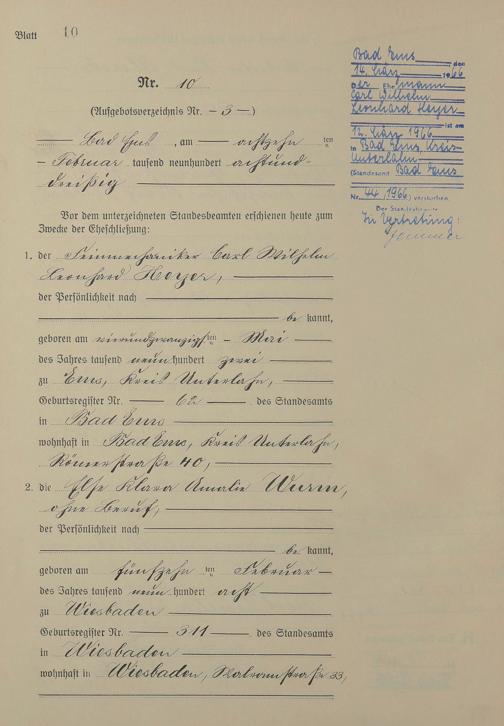 Blatt 10
Nr. 10
(Aufgebotsverzeichnis Nr. — 3 —)
Bad Ems, am achtzehnten
Februar tausend neunhundert achtund-
dreißig
Vor dem unterzeichneten Standesbeamten erschienen heute zum
Zwecke der Eheschließung:
1. der Feinmechaniker Carl Wilhelm
Leonhard Heyer,
der Persönlichkeit nach
be kannt,
geboren am vierundzwanzigsten Mai
des Jahres tausend neun hundert zwei
zu Ems, Kreis Unterlahn,
Geburtsregister Nr. 62 des Standesamts
in Bad Ems
wohnhaft in Bad Ems, Kreis Unterlahn,
Römerstraße 40,
2. die Else Klara Amalie Wurm,
ohne Beruf,
der Persönlichkeit nach
be kannt,
geboren am fünfzehn ten Februar
des Jahres tausend neun hundert acht
zu Wiesbaden
Geburtsregister Nr. 311 des Standesamts
in Wiesbaden
wohnhaft in Wiesbaden, Walramstraße 33,
Bad Ems, den
14. März 1966
Der Ehemann
Carl Wilhelm
Leonhard Heyer
ist am
12. März 1966
in Bad Ems, Kreis
Unterlahn
(Standesamt Bad Ems
Nr. 44/1966) verstorben.
Der Standesbeamte
In Vertretung: